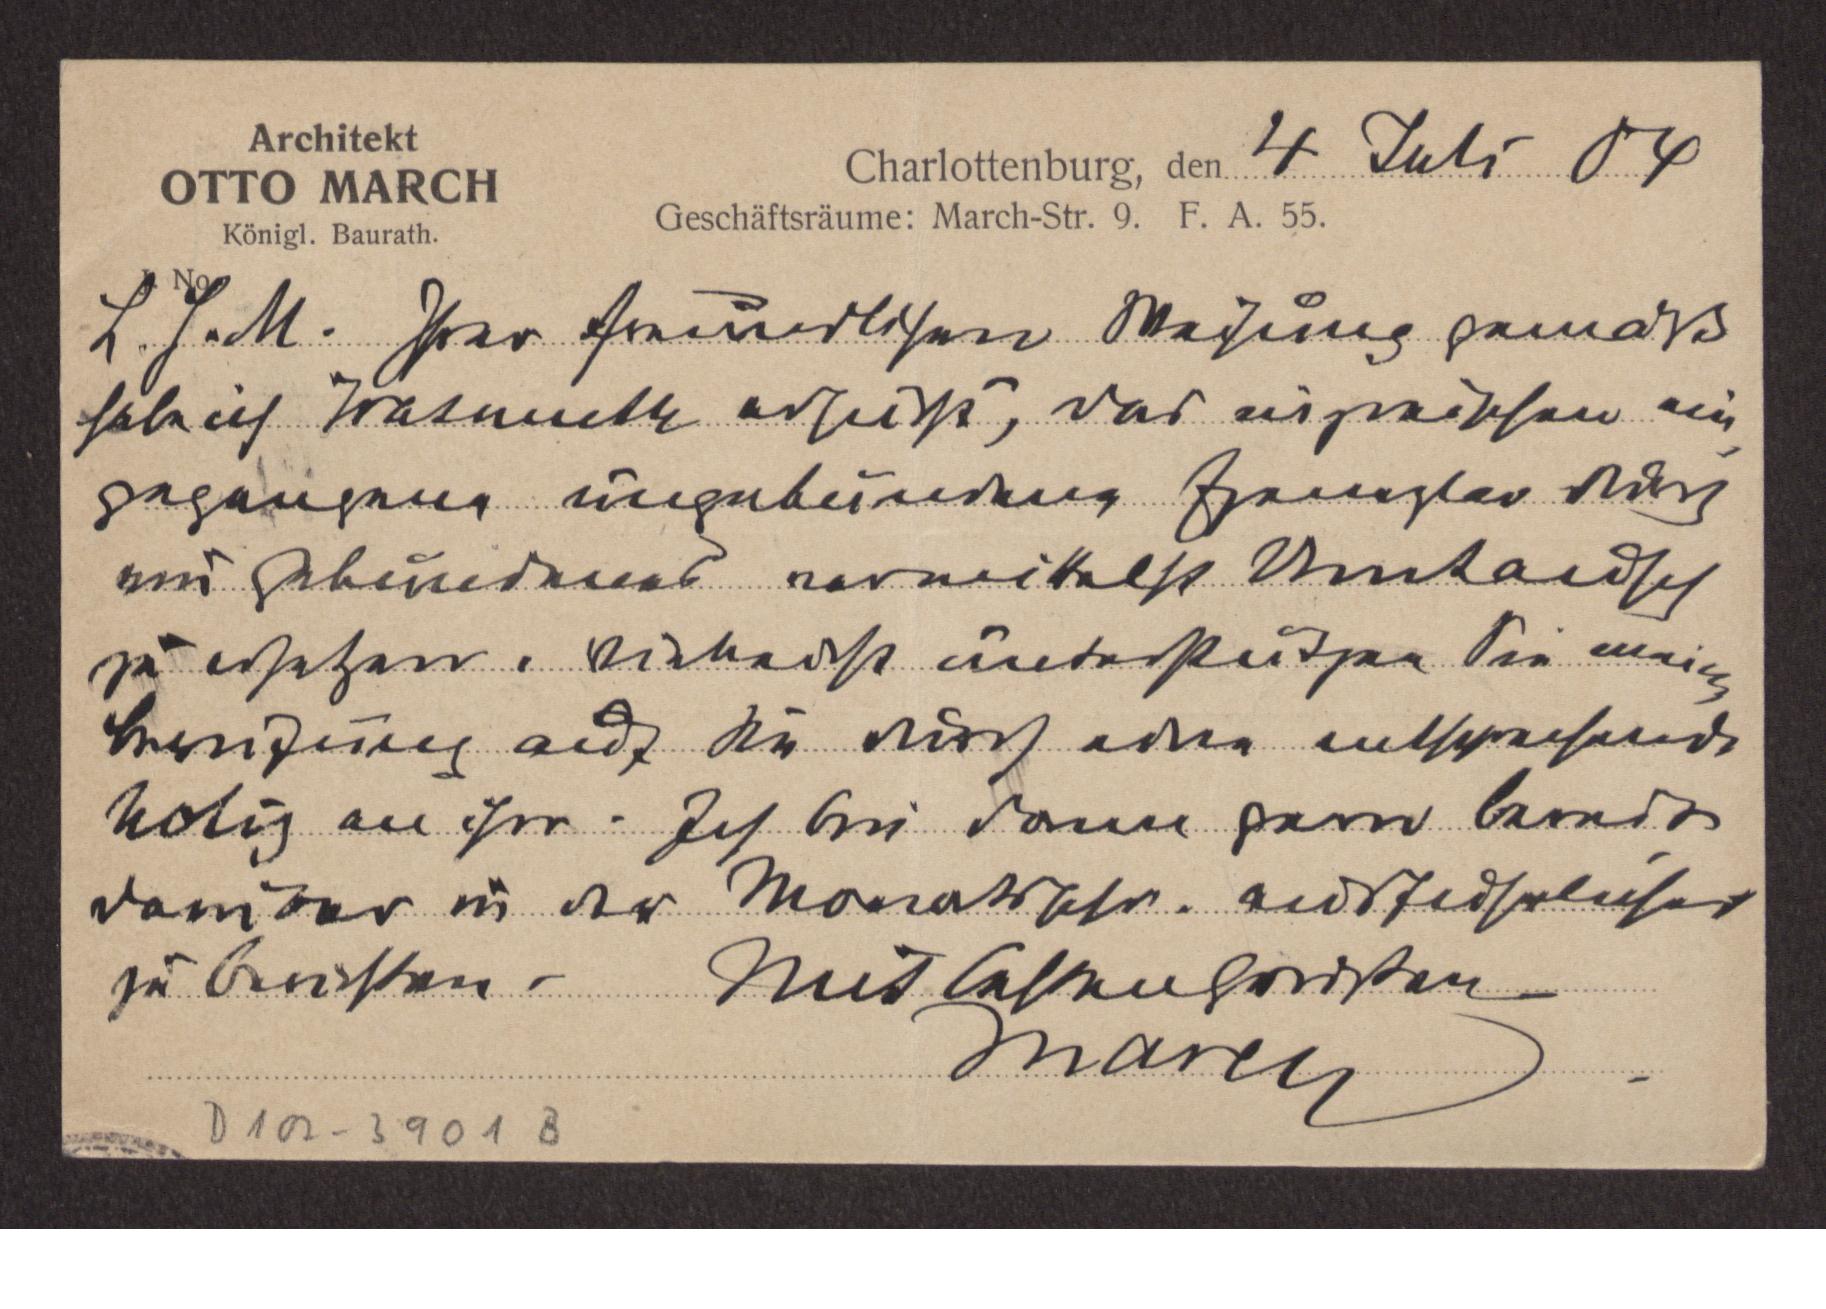 Architekt
OTTO MARCH
Königl. Baurath.
Charlottenburg, den 4 Juli 04
Geschäftsräume: March-Str. 9. F. A. 55.
J. No.
L. H. M. Ihrer freundlichen Weisung gemäß
habe ich Wasmuth ersucht, das inzwischen ein
gegangene ungebundene Exemplar durch
ein gebundenes vermittelst Umtausch
zu ersetzen. Vielleicht unterstützen Sie meine
auf Sie durch eine entsprechende
Notiz an ihn. Ich bin dann gern bereit
darüber in der Monatsschr. ausführlicher
zu berichten. Mit besten Grüßen
March
D 102-3901 B